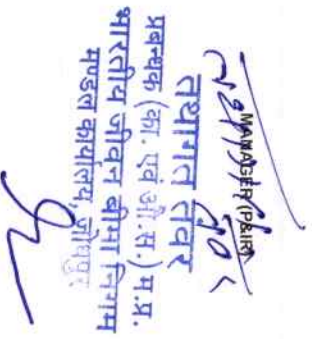 MANAGER (P&IR)
तथागत तंवर
प्रबन्धक (का. एवं औ.स.) म.प्र.
भारतीय जीवन बीमा निगम
मण्डल कार्यालय, जोधपुर